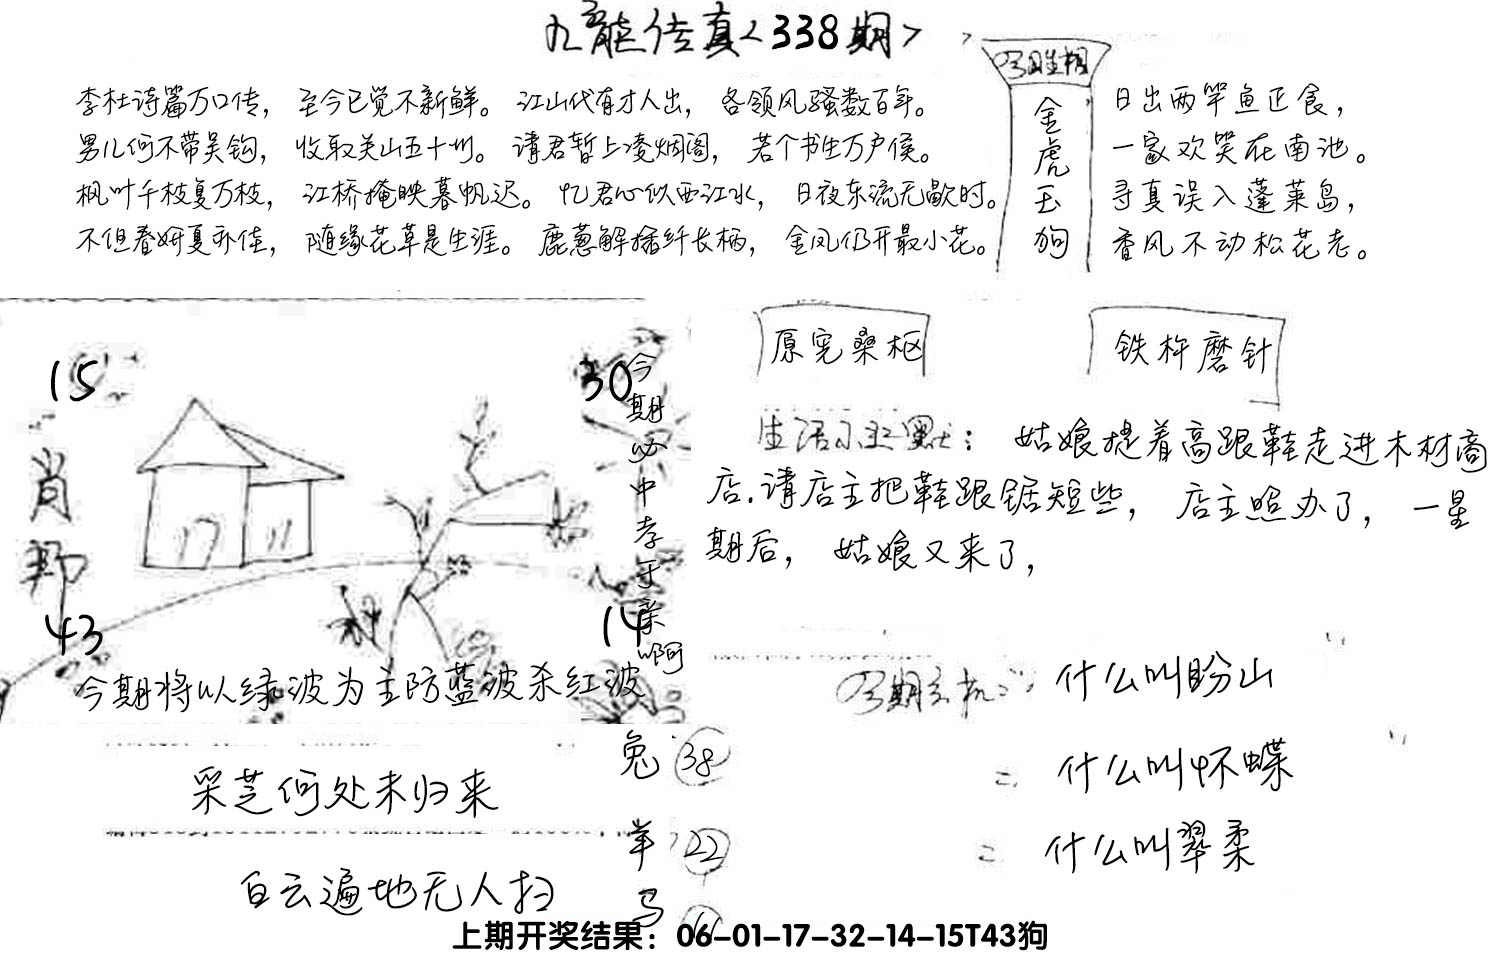 九龙传真<338期>
李杜诗篇万口传，至今已觉不新鲜。江山代有才人出，各领风骚数百年。
男儿何不带吴钩，收取关山五十州。请君暂上凌烟阁，若个书生万户侯。
枫叶千枝复万枝，江桥掩映暮帆迟。忆君心似西江水，日夜东流无歇时。
不但春妍夏亦佳，随缘花草是生涯。鹿葱解插纤长柄，金凤仍开最小花。
金虎玉狗
日出两竿鱼正食，
一家欢笑在南池。
寻真误入蓬莱岛，
香风不动松花老。
15
30
肖
43
14
今期必中孝子来啊
今期将以绿波为主防蓝波杀红波
原宪桑枢
铁杵磨针
姑娘提着高跟鞋走进木材商
店.请店主把鞋跟锯短些，店主照办了，一星
期后，姑娘又来了，
什么叫盼山
什么叫怀蝶
什么叫翠柔
采芝何处未归来
白云遍地无人扫
兔 38
羊 22
马
上期开奖结果：06-01-17-32-14-15T43狗